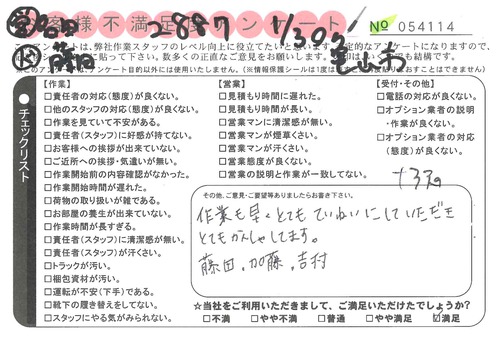 お客様不満足度アンケート
2887
1/30
№ 054114
アンケートは、弊社作業スタッフのレベル向上に役立てたいと思います。
数多くの正直なご意見をお願い
※このアンケートは、アンケート目的以外には使用いたしません。(※情報保護シールは1度
チェックリスト
【作業】
□責任者の対応(態度)が良くない。
□他のスタッフの対応(態度)が良くない。
□作業を見ていて不安がある。
□責任者(スタッフ)に好感が持てない。
□お客様への挨拶が出来ていない。
□ご近所への挨拶・気遣いが無い。
□作業開始前の内容確認がなかった。
□作業開始時間が遅れた。
□荷物の取り扱いが雑である。
□お部屋の養生が出来ていない。
□作業時間が長すぎる。
□責任者(スタッフ)に清潔感が無い。
□責任者(スタッフ)が汗くさい。
□トラックが汚い。
□梱包資材が汚い。
□運転が不安(下手)である。
□靴下の履き替えをしてない。
□スタッフにやる気がみられない。
【営業】
□見積もり時間に遅れた。
□見積もり時間が長い。
□営業マンに清潔感が無い。
□営業マンが煙草くさい。
□営業マンが汗くさい。
□営業態度が良くない。
□営業の説明と作業が一致してない。
【受付・その他】
□電話の対応が良くない。
□オプション業者の説明
・作業が良くない。
□オプション業者の対応
(態度)が良くない。
その他、ご意見・ご要望等ありましたらお書き下さい。
作業も早くとてもていねいにしていただき
とてもかんしゃしてます。
藤田、加藤、吉村
☆当社をご利用いただきまして、ご満足いただけたでしょうか?
□不満 □やや不満 □普通 □やや満足 ☑満足